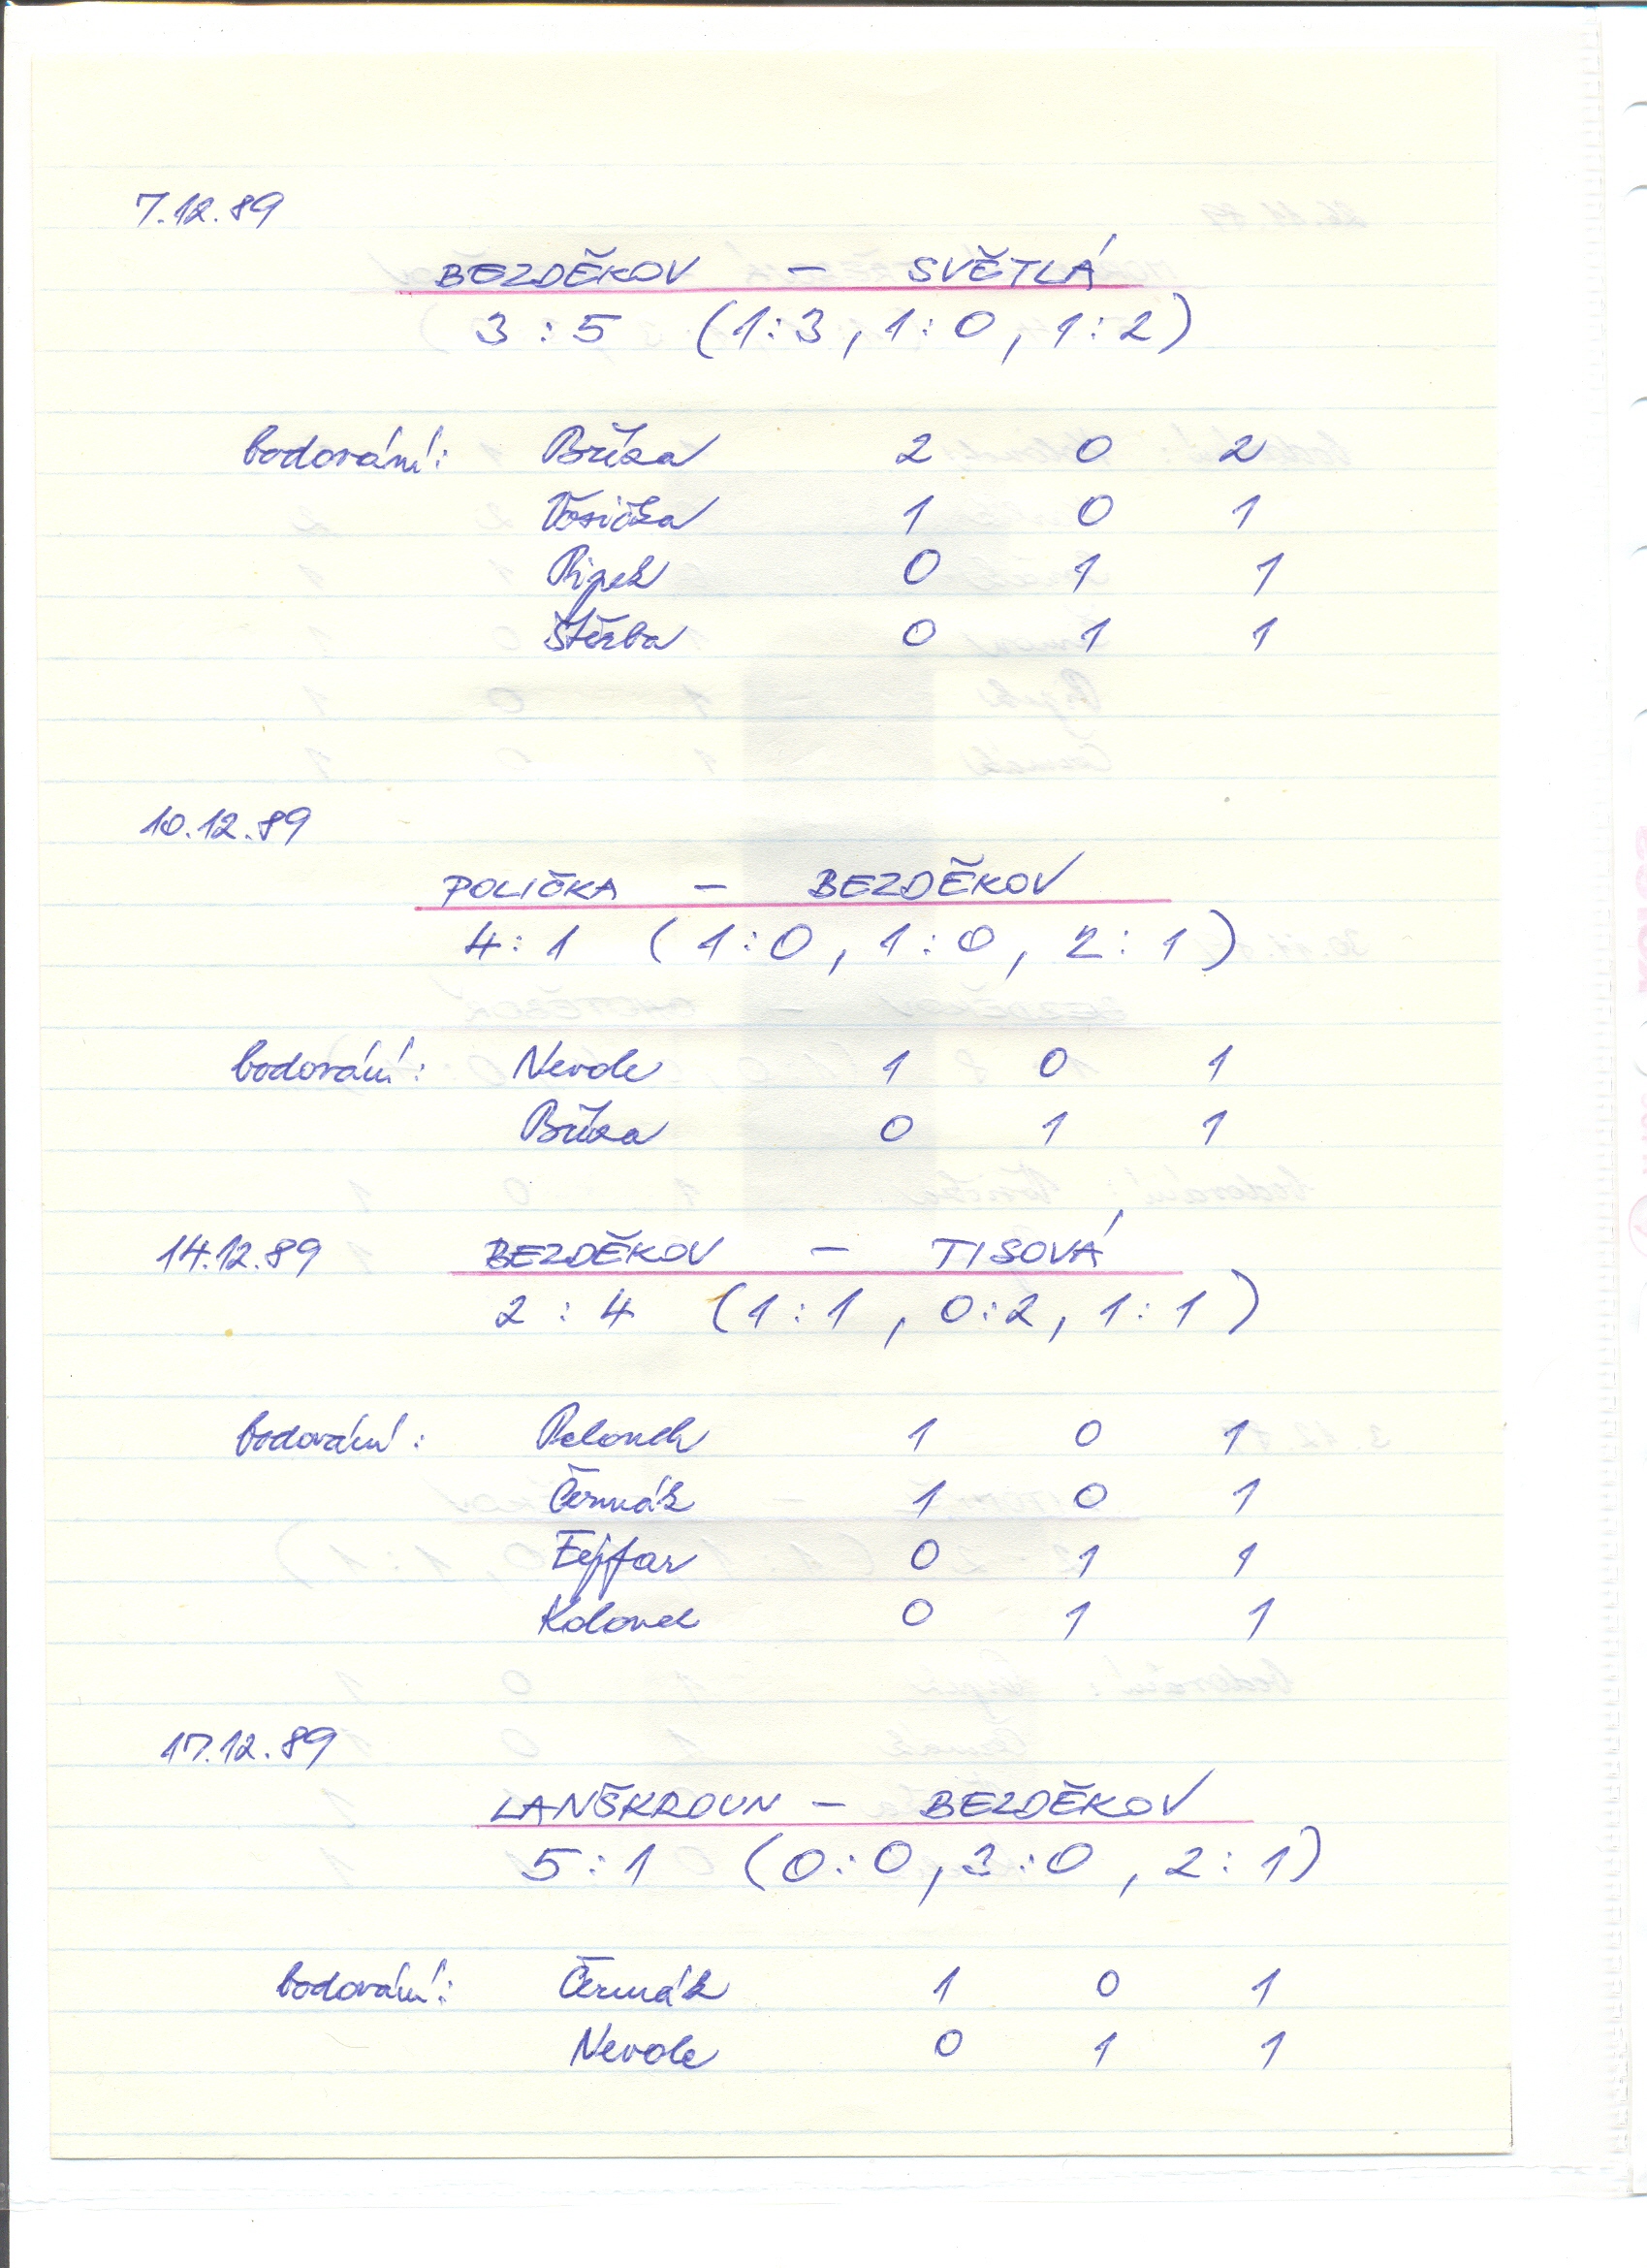 7.12.89
BEZDĚKOV – SVĚTLÁ
3 : 5 (1:3, 1:0, 1:2)
bodování: Bříza 2 0 2
Vosička 1 0 1
Pipek 0 1 1
Štěrba 0 1 1
10.12.89
POLIČKA – BEZDĚKOV
4:1 (1:0, 1:0, 2:1)
bodování: Nevole 1 0 1
Bříza 0 1 1
14.12.89 BEZDĚKOV – TISOVÁ
2 : 4 (1:1, 0:2, 1:1)
bodování: 1 0 1
Čermák 1 0 1
Fejfar 0 1 1
0 1 1
17.12.89
LANŠKROUN – BEZDĚKOV
5:1 (0:0, 3:0, 2:1)
bodování: Čermák 1 0 1
Nevole 0 1 1